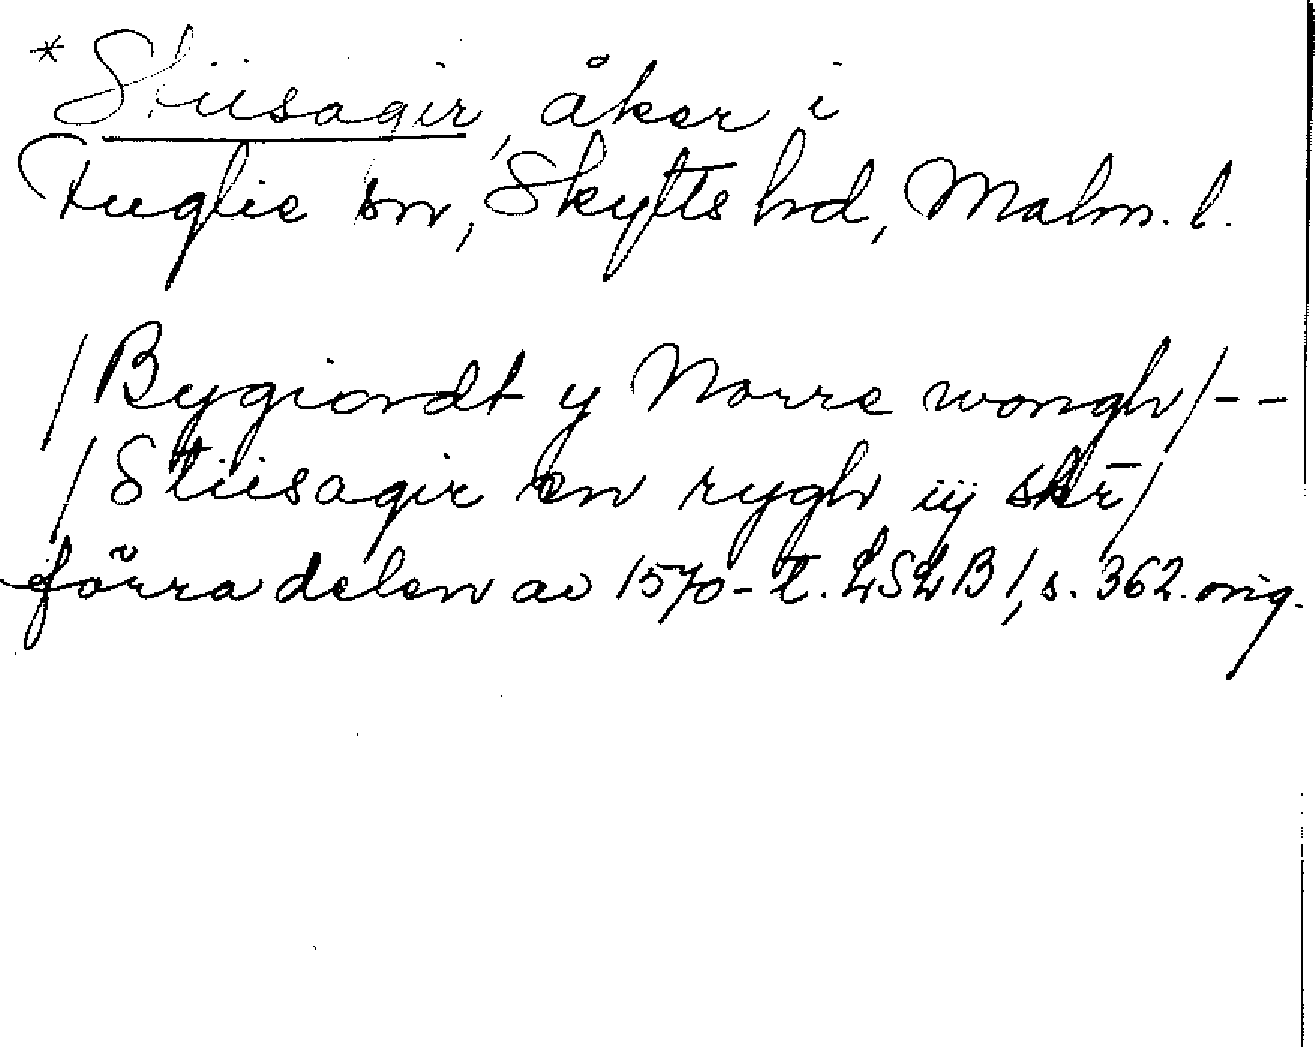 *Stiisagir, åker i
Fuglie sn, Skytts hd, Malm. l.
/Bygiordt y Norre wongh/--
/Stiisagir en rygh iij skr̄/
förra delen av 1570-t. LSLB 1, s. 362. orig.